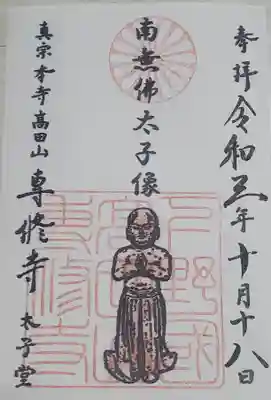 奉拝 令和三年十月十八日
南無佛太子像
真宗本寺高田山 専修寺 太子堂